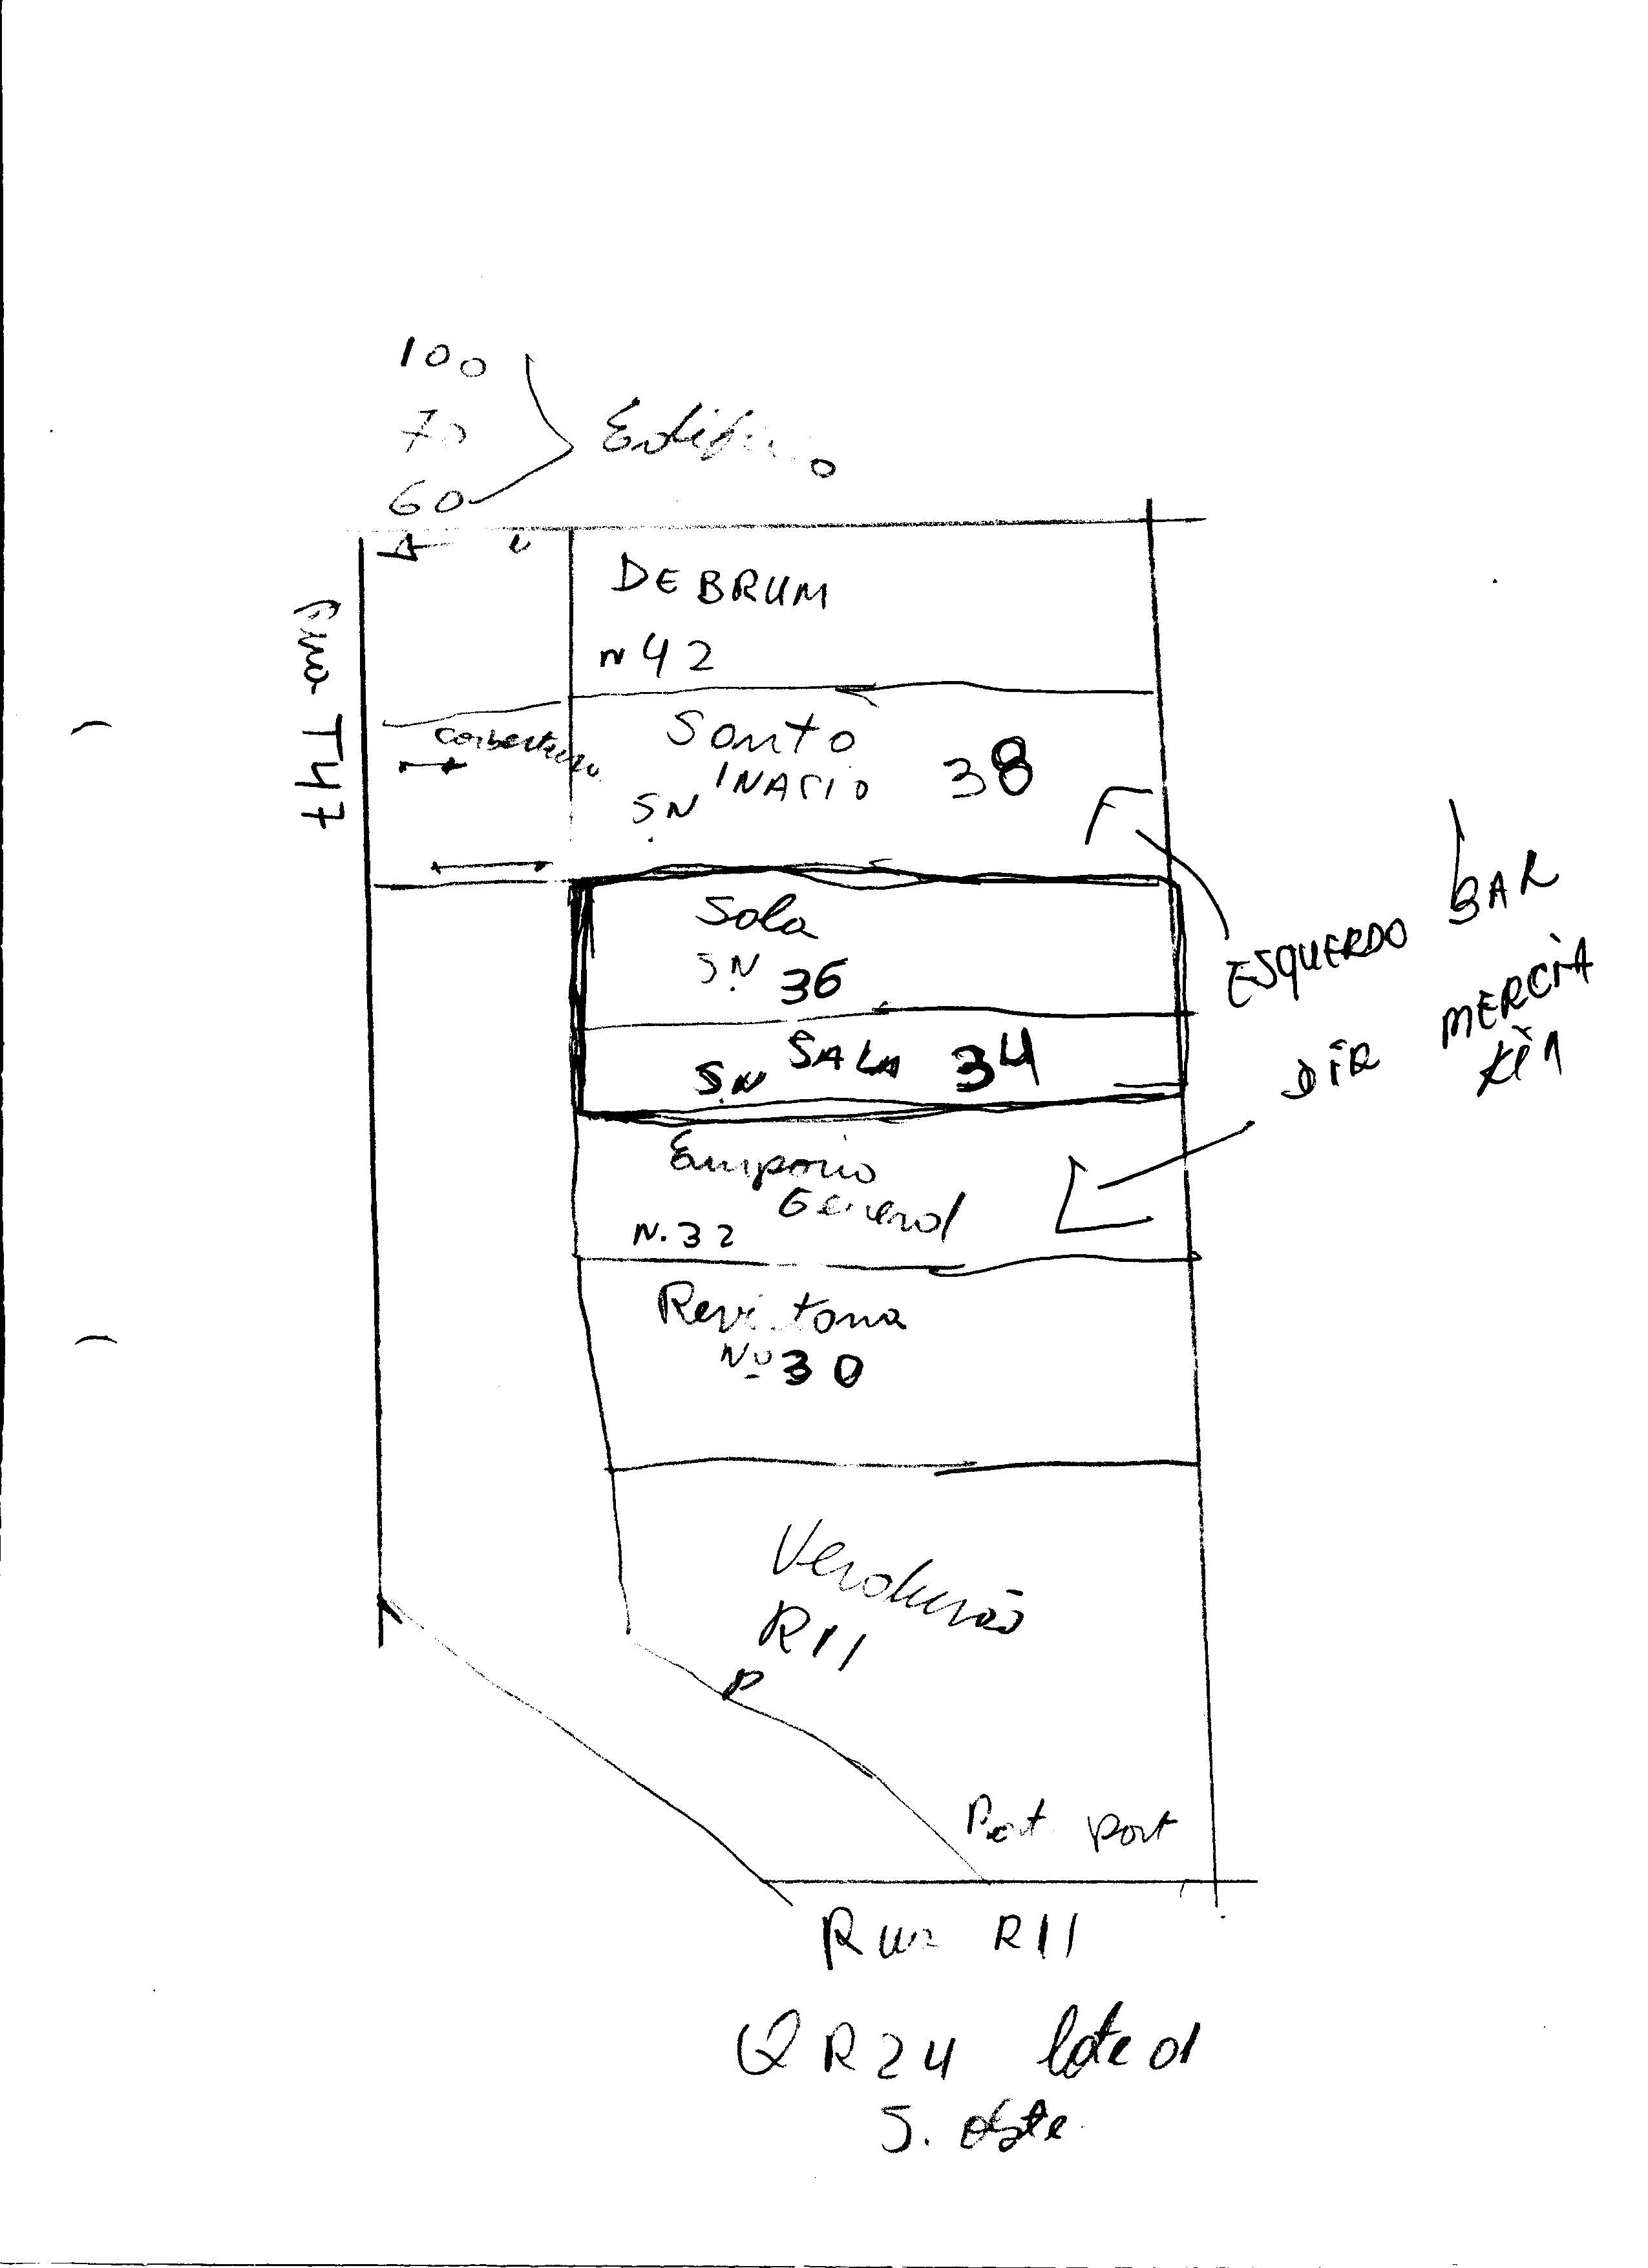 100
70
60
Edifício
DEBRUM
N 42
Rua T47
Santo
INACIO
SN
38
Sala
SN 36
SN SALA 34
ESQUERDO BAR
DIR MERCIA
RIA
Emporio
General
N. 32
Nº 30
Verdurão
R11
P
Port Port
Rua R11
Q R24 lote 01
S. oeste